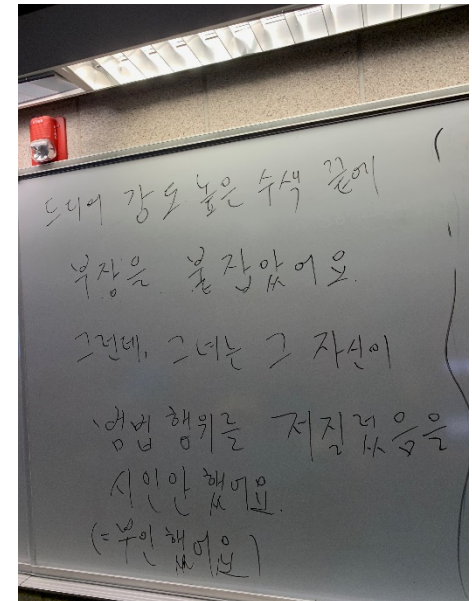 드디어 강도 높은 수색 끝에
부장을 붙잡았어요.
그런데, 그녀는 그 자신이
범법 행위를 저질렀음을
시인안 했어요.
(=부인했어요)